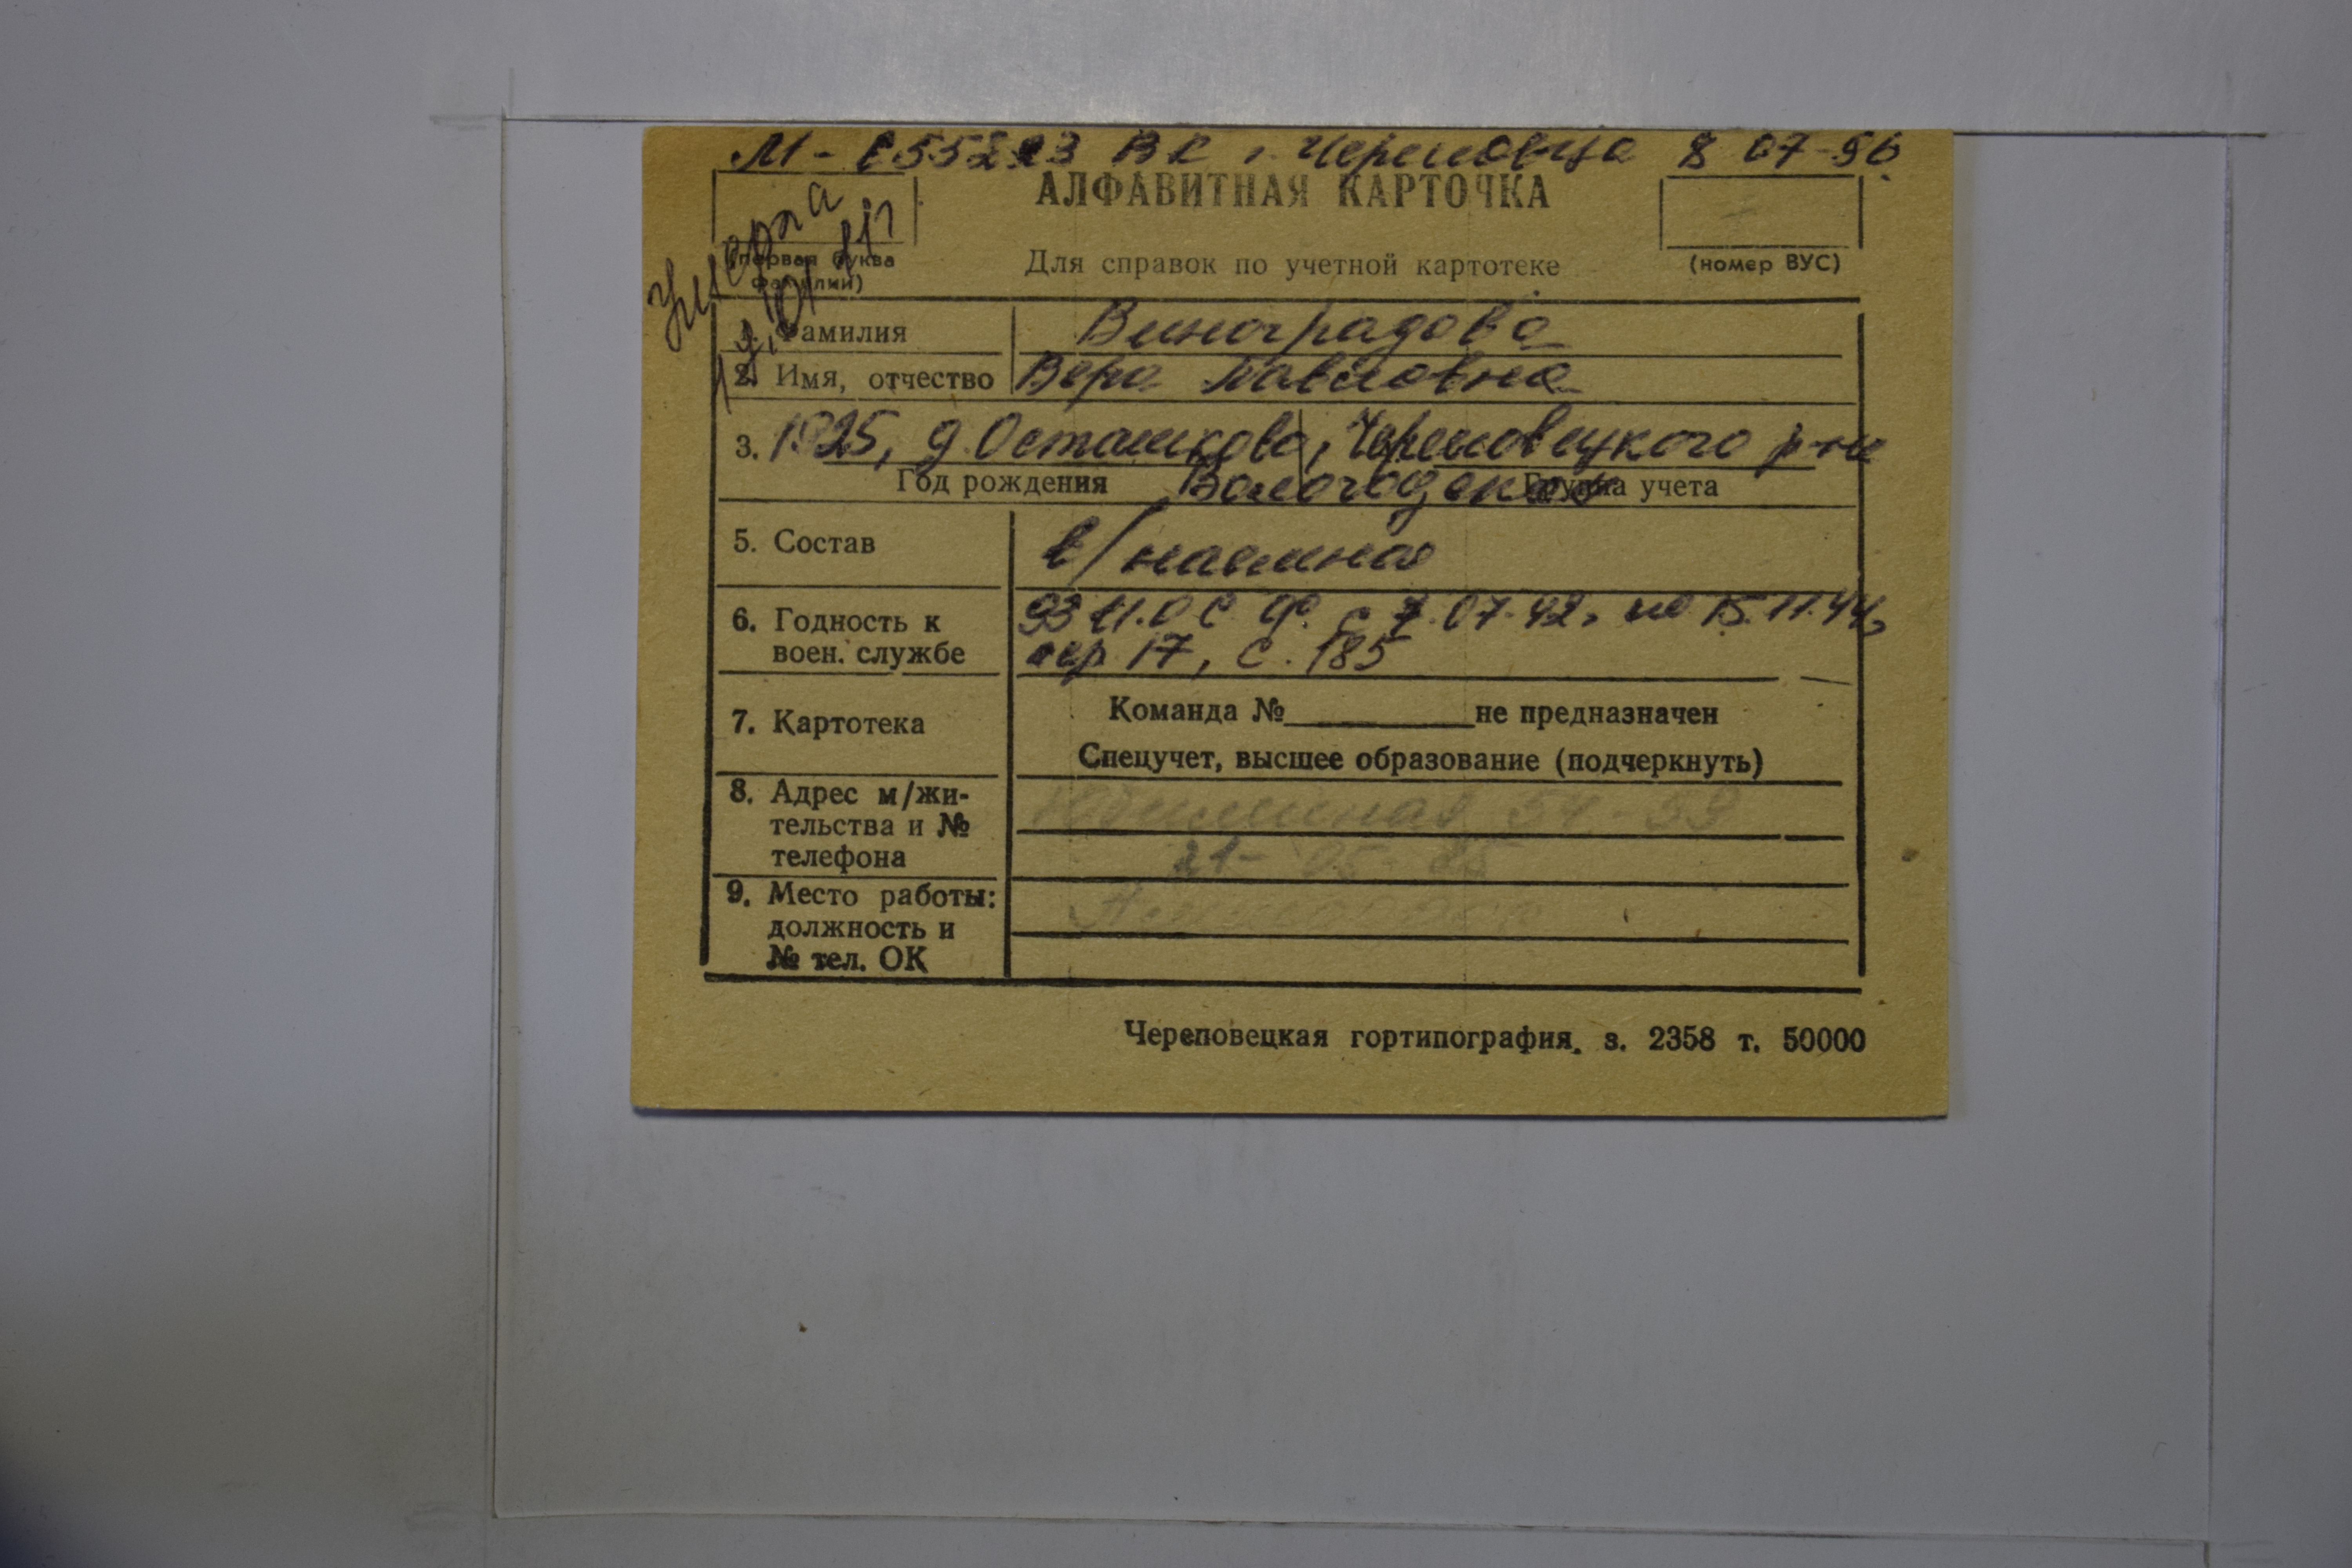 М- 055213 ВК г. Череповца 8 07-96
АЛФАВИТНАЯ КАРТОЧКА
Умерла
(первая буква фамилии)
Для справок по учетной картотеке
(номер ВУС)
1. Фамилия Виноградова
2. Имя, отчество Вера Павловна
3. 1925, д. Осташково, Череповецкого р-на
Год рождения Вологодской Группа учета
5. Состав в/наемная
6. Годность к с 7.07.42, по 15.11.44,
воен. службе пер 17, с. 185
7. Картотека Команда № не предназначен
Спецучет, высшее образование (подчеркнуть)
8. Адрес м/жи- Юбилейная 54-59
тельства и № 21-05-85
телефона
9. Место работы:
должность и
№ тел. ОК
Череповецкая гортипография. з. 2358 т. 50000